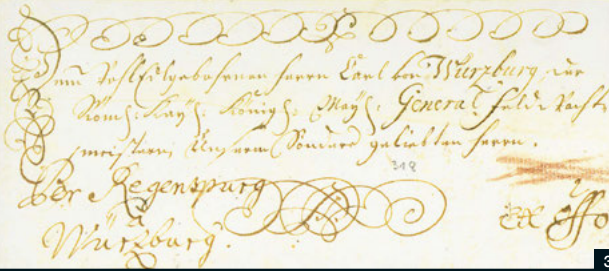 Dem WohlEdlgebohrnen Herrn Carl von Würzburg, der
Röm: Kay: Königl: May: General Feld Wacht
meistern, Unserm Sonders geliebten Herrn.
318
Per Regenspurg
Würtzburg.